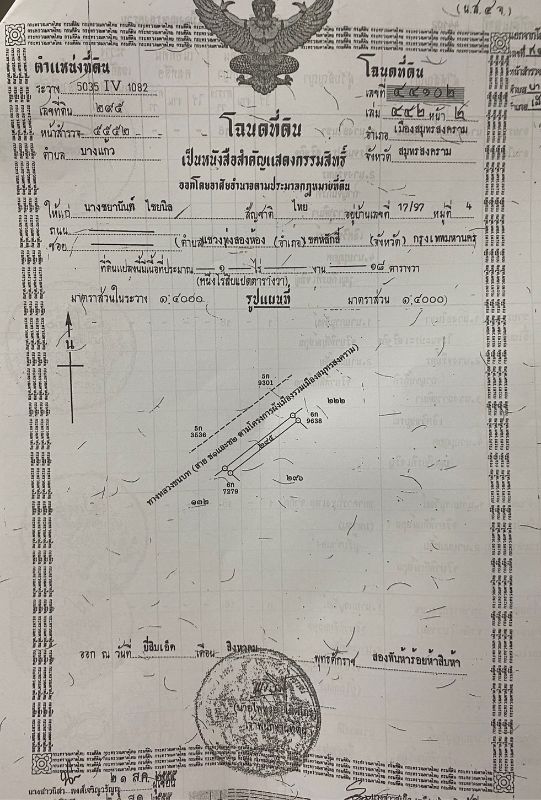 (น.ส. ๔ จ.)
ตำแหน่งที่ดิน
ระวาง 5035 IV 1082
เลขที่ดิน ๒๙๕
หน้าสำรวจ ๕๕๕๒
ตำบล บางแก้ว
โฉนดที่ดิน
เลขที่ ๔๔๑๐๒
เล่ม ๔๔๒ หน้า ๒
อำเภอ เมืองสมุทรสงคราม
จังหวัด สมุทรสงคราม
โฉนดที่ดิน
เป็นหนังสือสำคัญแสดงกรรมสิทธิ์
ออกโดยอาศัยอำนาจตามประมวลกฎหมายที่ดิน
ให้แก่ นางชยานันท์ ไชยนิล สัญชาติ ไทย อยู่บ้านเลขที่ 17/97 หมู่ที่ 4
ถนน
ซอย (ตำบล) แขวงทุ่งสองห้อง (อำเภอ) เขตหลักสี่ (จังหวัด) กรุงเทพมหานคร
ที่ดินแปลงนี้มีเนื้อที่ประมาณ ๑ ไร่ งาน ๑๘ ตารางวา
(หนึ่งไร่สิบแปดตารางวา)
มาตราส่วนในระวาง ๑:๔๐๐๐ รูปแผนที่ มาตราส่วน ๑:๔๐๐๐
น
ธก
9301
๒๒๒
ธก
9638
ธก
3536
ทางหลวงชนบท (สาย ข๑และข๒ ตามโครงการผังเมืองรวมเมืองสมุทรสงคราม)
๒๙๕
๒๙๖
ธก
7279
๑๓๒
ออก ณ วันที่ ยี่สิบเอ็ด เดือน สิงหาคม พุทธศักราช สองพันห้าร้อยห้าสิบห้า
๒๑ ส.ค. ๒๕๕๕